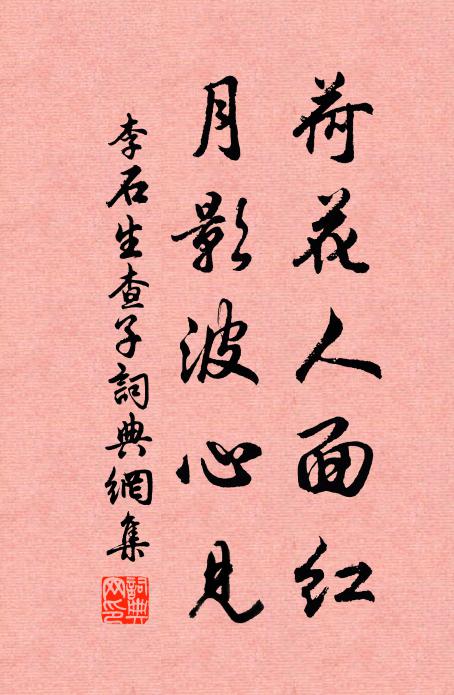 荷花人面红
月影波心见
李石生查子詞典網集
詞典網印